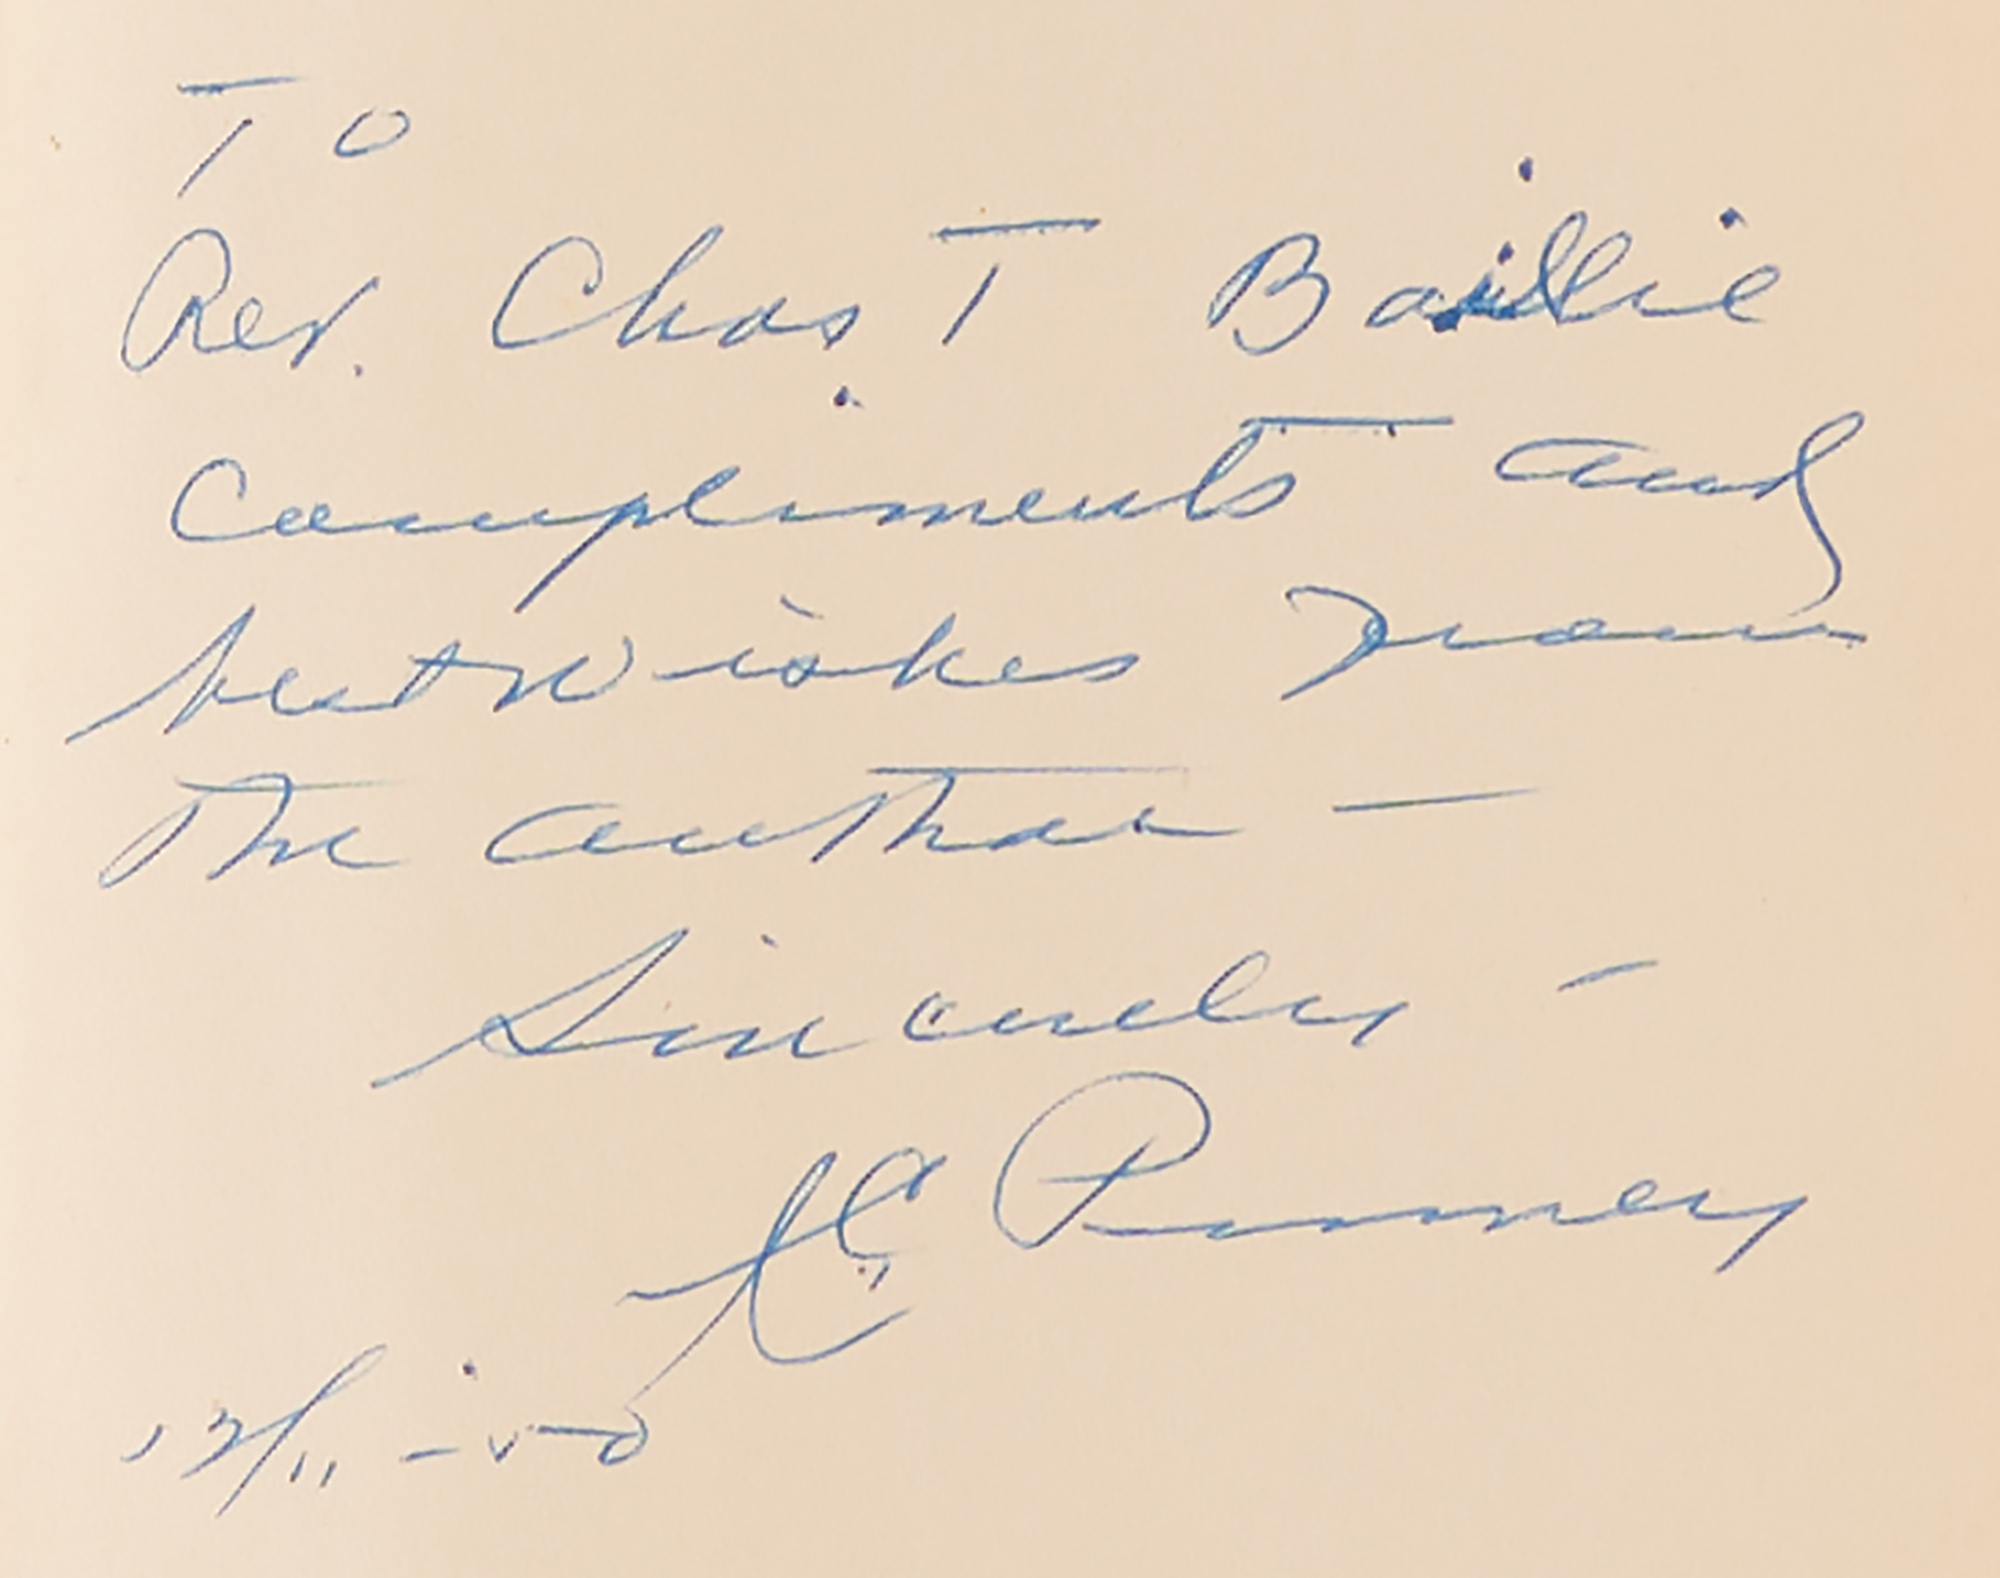 To
Rev. Chas T Baillie
Compliments and
best wishes from
the author —
Sincerely —
J C Penney
12/11 - 50